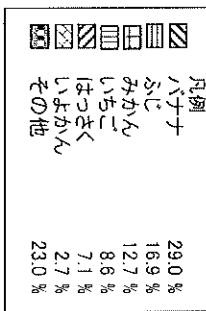 凡例
バナナ 29.0 %
ふじ 16.9 %
みかん 12.7 %
いちご 8.6 %
はっさく 7.1 %
いよかん 2.7 %
その他 23.0 %